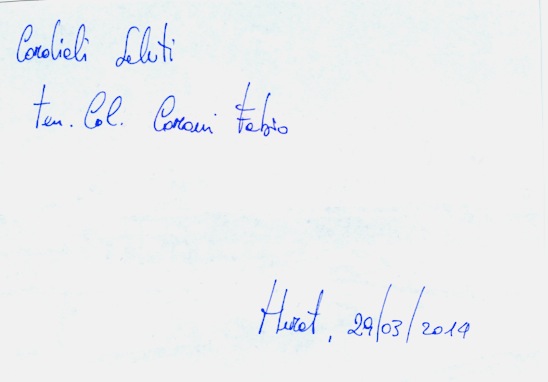 Cordiali Saluti
Ten. Col. Carani Fabio
Herat, 29/03/2014